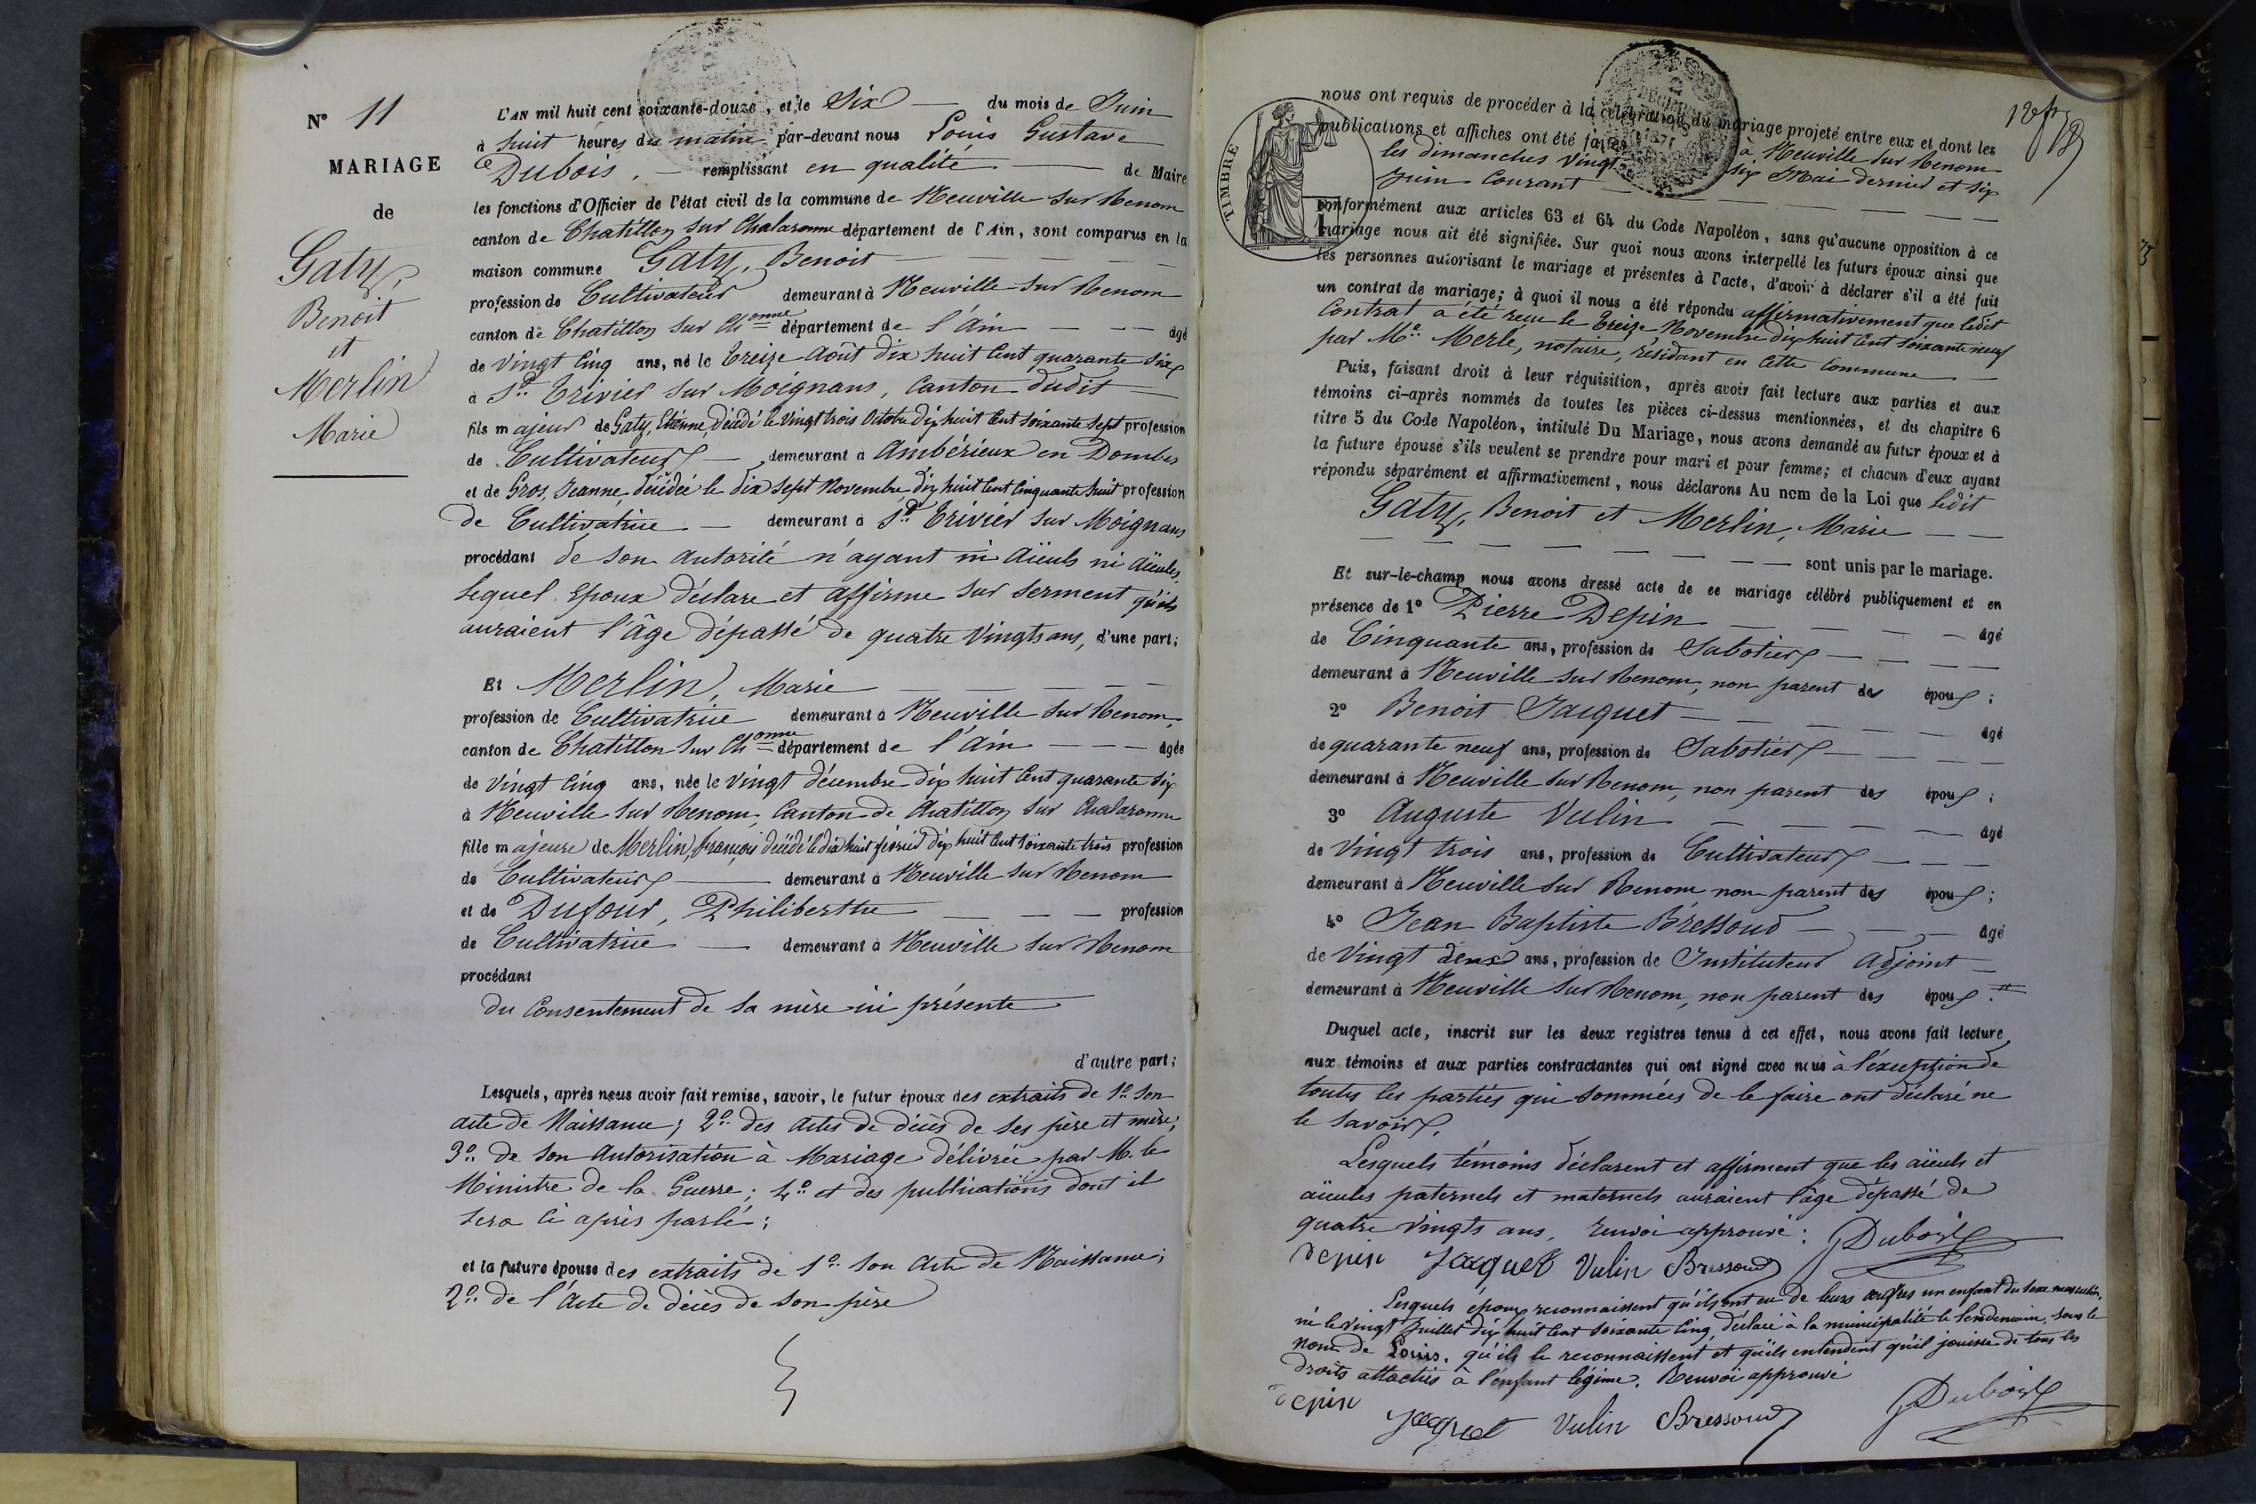 N° 11
MARIAGE
de
Gaty,
Benoit
et
Merlin
Marie
L'AN mil huit cent soixante-douze, et le Six — du mois de Juin
à huit heures du matin par-devant nous Louis Gustave
Dubois, — remplissant en qualité — de Maire
les fonctions d'Officier de l'état civil de la commune de Neuville sur Renom
canton de Chatillon sur Chalaronne département de l'Ain, sont comparus en la
maison commune Gaty, Benoit —
profession de Cultivateur demeurant à Neuville sur Renom
canton de Chatillon sur Chonne département de l'Ain — — âgé
de Vingt Cinq ans, né le Treize Août dix huit Cent quarante six
à St. Trivier sur Moignans, Canton dudit —
fils majeur de Gaty, Etienne, Décédé le Vingt trois Octobre dix huit Cent soixante sept profession
de Cultivateur — demeurant à Ambérieux en Dombes
et de Gros, Jeanne, décédée le dix sept Novembre dix huit Cent Cinquante huit profession
de Cultivatrice — demeurant à St. Trivier sur Moignans
procédant de son autorité n'ayant ni Aïeuls ni Aïeules,
Lequel Epoux déclare et affirme sur serment qu'ils
auraient l'âge dépassé de quatre Vingts ans, d'une part;
Et Merlin, Marie — — — —
profession de Cultivatrice demeurant à Neuville sur Renom,
canton de Chatillon sur Chonne département de l'Ain — — — âgée
de Vingt Cinq ans, née le Vingt décembre dix huit Cent quarante six
à Neuville sur Renom, Canton de Chatillon sur Chalaronne
fille majeure de Merlin, François décédé le dix huit février dix huit Cent soixante trois profession
de Cultivateur — demeurant à Neuville sur Renom
et de Dufour, Philiberthe — — — profession
de Cultivatrice — demeurant à Neuville sur Renom
procédant
du Consentement de sa mère ici présente —
d'autre part;
Lesquels, après nous avoir fait remise, savoir, le futur époux des extraits de 1° Son
acte de Naissance; 2° des actes de décès de ses père et mère;
3° de son Autorisation à Mariage délivrée par M. le
Ministre de la Guerre; 4° et des publications dont il
sera ci après parlé;
et la future épouse des extraits de 1° Son acte de Naissance;
2° de l'Acte de décès de son père
TIMBRE
nous ont requis de procéder à la célébration du mariage projeté entre eux et dont les
publications et affiches ont été faites à Neuville sur Renom
les dimanches Vingt six Mai dernier et six
Juin Courant — — — — — —
conformément aux articles 63 et 64 du Code Napoléon, sans qu'aucune opposition à ce
mariage nous ait été signifiée. Sur quoi nous avons interpellé les futurs époux ainsi que
les personnes autorisant le mariage et présentes à l'acte, d'avoir à déclarer s'il a été fait
un contrat de mariage; à quoi il nous a été répondu affirmativement que ledit
Contrat a été reçu le Treize Novembre dix huit Cent soixante neuf
par Me. Merle, notaire, résidant en Cette Commune —
Puis, faisant droit à leur réquisition, après avoir fait lecture aux parties et aux
témoins ci-après nommés de toutes les pièces ci-dessus mentionnées, et du chapitre 6
titre 5 du Code Napoléon, intitulé Du Mariage, nous avons demandé au futur époux et à
la future épouse s'ils veulent se prendre pour mari et pour femme; et chacun d'eux ayant
répondu séparément et affirmativement, nous déclarons Au nom de la Loi que ledit
Gaty, Benoit et Merlin, Marie — —
— — sont unis par le mariage.
Et sur-le-champ nous avons dressé acte de ce mariage célébré publiquement et en
présence de 1° Pierre Depin — — — — âgé
de Cinquante ans, profession de Sabotier — — —
demeurant à Neuville sur Renom, non parent des époux;
2° Benoit Jacquet — — — — âgé
de quarante neuf ans, profession de Sabotier — — —
demeurant à Neuville sur Renom, non parent des époux;
3° Auguste Vulin — — — — âgé
de Vingt trois ans, profession de Cultivateur — — —
demeurant à Neuville sur Renom non parent des époux;
4° Jean Baptiste Bressoud — — — âgé
de Vingt deux ans, profession de Instituteur Adjoint —
demeurant à Neuville sur Renom, non parent des époux.
Duquel acte, inscrit sur les deux registres tenus à cet effet, nous avons fait lecture
aux témoins et aux parties contractantes qui ont signé avec nous à l'exception de
toutes les parties qui sommées de le faire ont déclaré ne
le savoir.
Lesquels témoins déclarent et affirment que les aïeuls et
aïeules paternels et maternels auraient l'âge dépassé de
quatre Vingts ans, renvoi approuvé: Dubois
Depin Jacquet Vulin Bressoud
Lesquels époux reconnaissent qu'ils ont eu de leurs œuvres un enfant du sexe masculin,
né le Vingt Juillet dix huit Cent soixante Cinq, déclaré à la municipalité le lendemain, sous le
nom de Louis, qu'ils le reconnaissent et qu'ils entendent qu'il jouisse de tous les
droits attachés à l'enfant légime. Renvoi approuvé
Depin Jacquet Vulin Bressoud Dubois